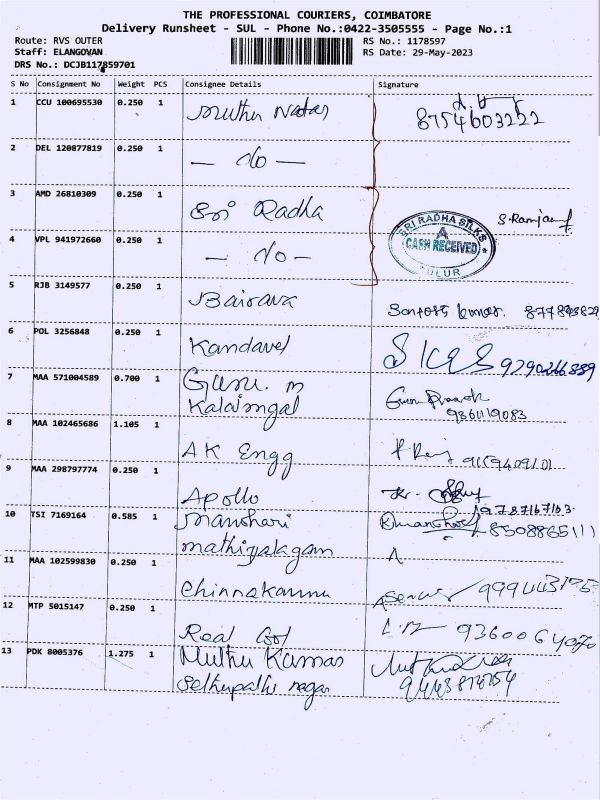 THE PROFESSIONAL COURIERS, COIMBATORE
Delivery Runsheet - SUL - Phone No.:0422-3505555 - Page No.:1
Route: RVS OUTER
Staff: ELANGOVAN
DRS No.: DCJB117859701
RS No.: 1178597
RS Date: 29-May-2023
S No Consignment No Weight PCS Consignee Details Signature
1 CCU 100695530 0.250 1 Muthu
8754603222
2 DEL 120877819 0.250 1 — do —
3 AMD 26810309 0.250 1 Sri Radha
SRI RADHA SILKS
CASH RECEIVED
SULUR
4 VPL 941972660 0.250 1 — do —
5 RJB 3149577 0.250 1 Bairava
6 POL 3256848 0.250 1 Kandavel
7 MAA 571004589 0.700 1 Guru. m
Kalaimgal
9361119083
8 MAA 102465686 1.105 1 AK Engg
9 MAA 298797774 0.250 1 Apollo
10 TSI 7169164 0.585 1 manohari
mathiyalagam
8508865111
11 MAA 102599830 0.250 1 Chinnakannu
12 MTP 5015147 0.250 1 Real
13 PDK 8005376 1.275 1 Muthu Kumar
Sethupathi nagar